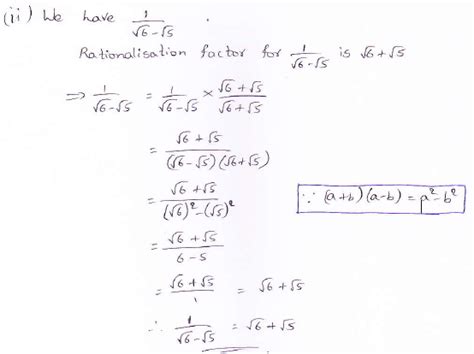 (ii) We have 1/(√6-√5) .
Rationalisation factor for 1/(√6-√5) is √6+√5
⇒ 1/(√6-√5) = 1/(√6-√5) × (√6+√5)/(√6+√5)
= (√6+√5)/((√6-√5)(√6+√5))
= (√6+√5)/((√6)²-(√5)²) ∵ (a+b)(a-b)=a²-b²
= (√6+√5)/(6-5)
= (√6+√5)/1 = √6+√5
∴ 1/(√6-√5) = √6+√5